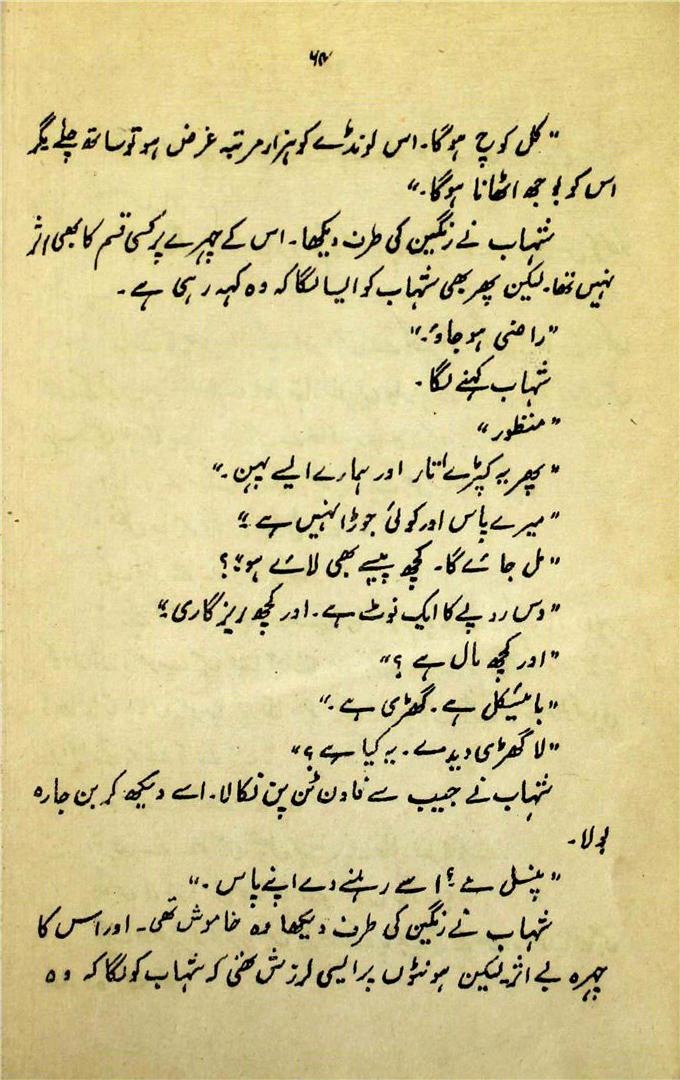 ۶۴
"کل کوچ ہوگا۔ اس لونڈے کو ہزار مرتبہ غرض ہو تو ساتھ چلے مگر
اس کو بوجھ اٹھانا ہوگا۔"
شہاب نے رنگین کی طرف دیکھا۔ اس کے چہرے پر کسی قسم کا بھی اثر
نہیں تھا۔ لیکن پھر بھی شہاب کو ایسا لگا کہ وہ کہہ رہی ہے۔
"راضی ہو جاؤ۔"
شہاب کہنے لگا۔
"منظور"
"پھر یہ کپڑے اتار اور ہمارے ایسے پہن۔"
"میرے پاس اور کوئی جوڑا نہیں ہے۔"
"مل جائے گا۔ کچھ پیسے بھی لائے ہو؟"
"دس روپے کا ایک نوٹ ہے۔ اور کچھ ریزگاری۔"
"اور کچھ مال ہے؟"
"بائیسکل ہے۔ گھڑی ہے۔"
"لا گھڑی دیدے۔ یہ کیا ہے؟"
شہاب نے جیب سے فاؤن ٹن پن نکالا۔ اسے دیکھ کر بن جارہ
بولا۔
"پنسل ہے؟ اسے رہنے دے اپنے پاس۔"
شہاب نے رنگین کی طرف دیکھا وہ خاموش تھی۔ اور اس کا
چہرہ بے اثر لیکن ہونٹوں پر ایسی لرزش تھی کہ شہاب کو لگا کہ وہ